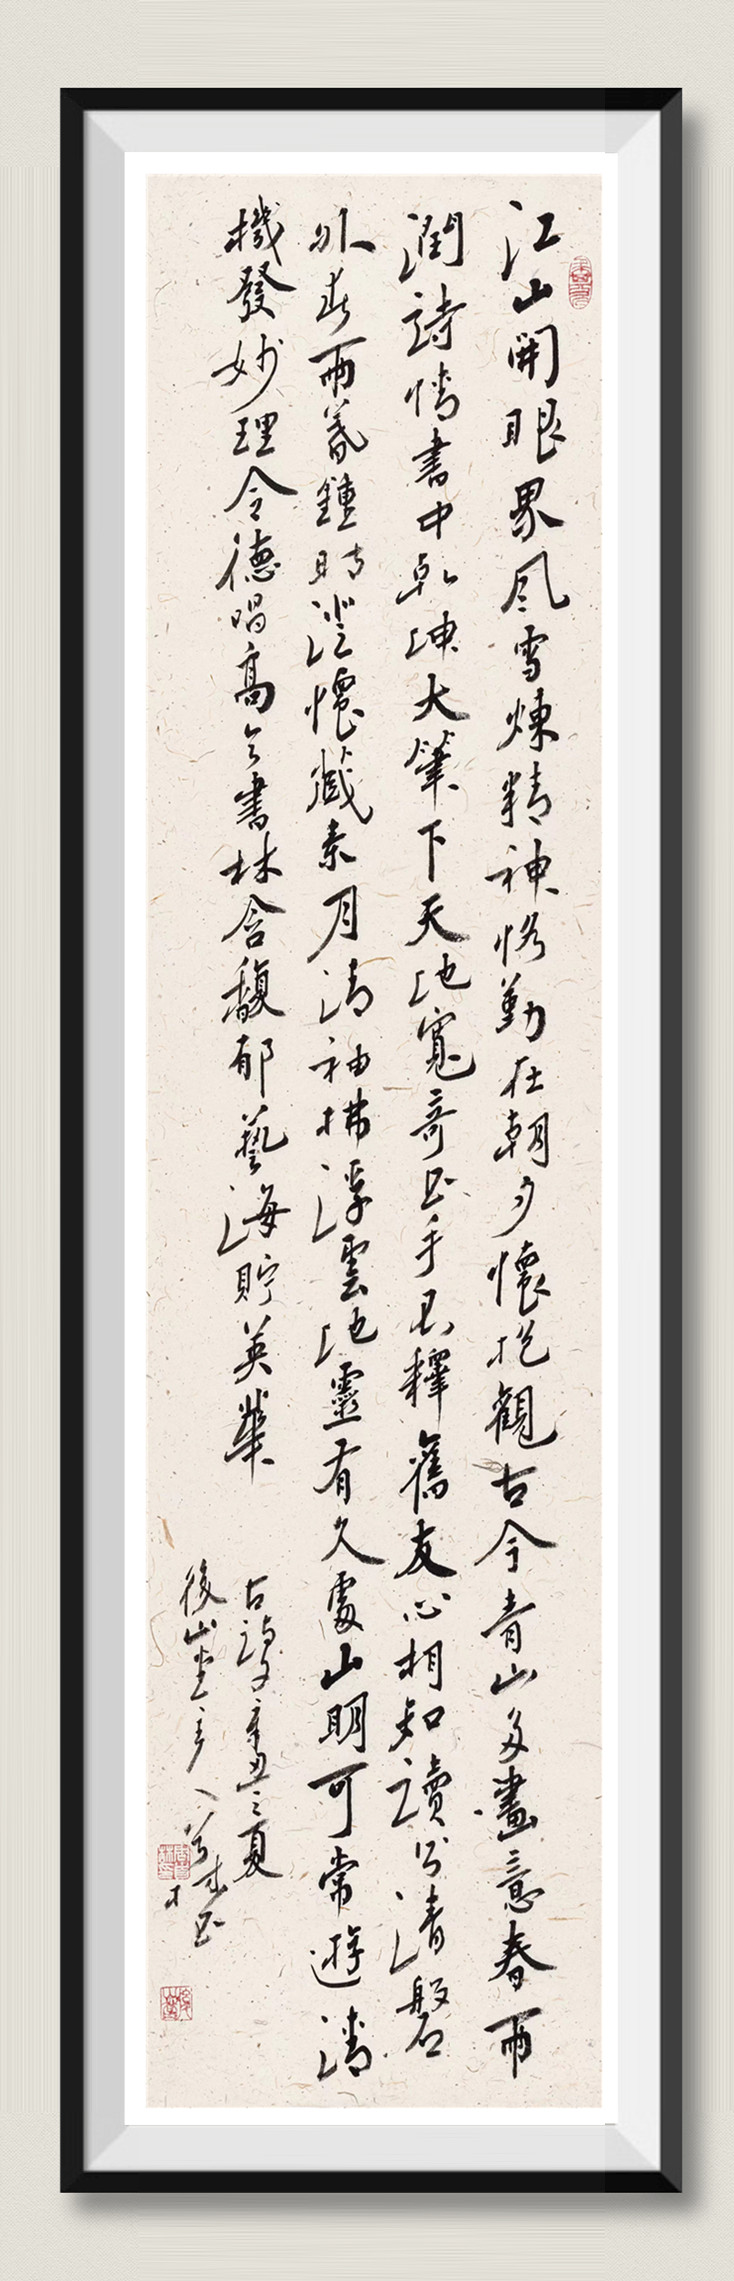 江山開眼界風雪煉精神恪勤在朝夕懷抱觀古今青山多畫意春雨
潤詩情書中乾坤大筆下天地寬奇書手不釋舊友心相知讀
清磬
外春雨暮鐘時澄懷藏素月清袖拂浮雲地靈有久處山明可常遊清
機發妙理令德唱高言書林含馥郁藝海貯英華
古詩辛丑之夏
後